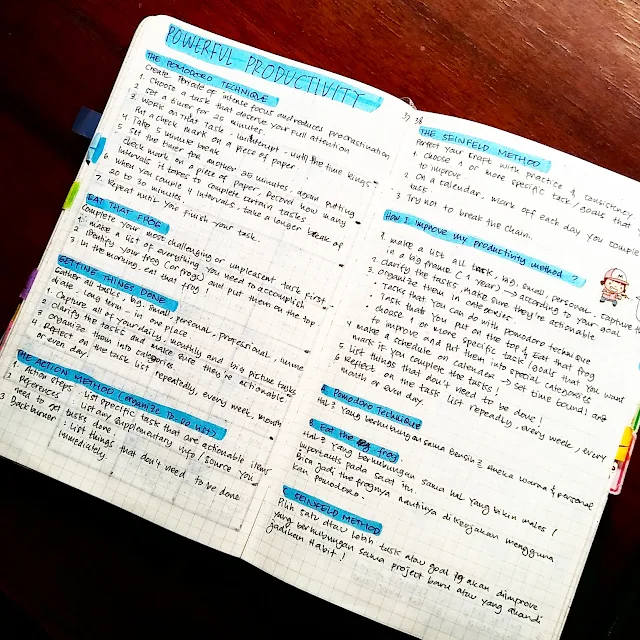 POWERFUL PRODUCTIVITY
THE POMODORO TECHNIQUE
Create Periode of intense focus and reduces procrastination
1. Choose a task that deserve your full attention
2. Set a timer for 25 minutes.
3. Work on that task - uninterrupt - until the time rings
Put a check mark on a piece of paper.
4. Take 5 minute break
5. Set the timer for another 25 minutes, again putting
check mark on a piece of paper. Record how many
intervals it takes to complete certain tasks
6. When you couple 4 intervals, take a longer break of
20 to 30 minutes.
7. Repeat until you finish your task.
EAT THAT FROG
Complete your most challenging or unpleasent task first
1. make a list of everything you need to accomplish
2. Identify your frog (or frogs) and put them on the top
3. in the morning, eat that frog!
GETTING THINGS DONE
Gather all tasks, big, small, personal, professional,
long term - in one place
1. Capture all of your daily, monthly and big picture tasks
2. Clarify the tasks and make sure they're actionable
3. Organize them into categories.
4. Reflect on the task list repeatedly, every week, month
or even day.
THE ACTION METHOD (ORGANIZE TO-DO LIST)
1. Action steps : List specific task that are actionable items
2. References : List any supplementary info / source you
need to get tasks done
3. Back burner : List things that don't need to be done
immediately.
38
THE SEINFELD METHOD
Perfect your craft with practice & consistency
1. Choose 1 or more specific task, goals that you
to improve
2. On a calendar, mark off each day you couple
task
3. Try not to break the chain.
HOW I improve my productivity method ?
1. make a list all task, big, small, personal, capture
in a big frame (1 year) → according to your goal
2. Clarify the tasks, make sure they're actionable
3. Organize them in categories
Tasks that you can do with pomodoro technique
Task that you put on the top & eat that frog
Choose 1 or more specific task/goals that you want
to improve and put them into special categories
4. make a schedule on calendar → set time bound! and
mark if you complete the tasks!
5. List things that don't need to be done!
6. Reflect on the task list repeadly, every week, every
month or even day.
Pomodoro Technique
Hal² yang berhubungan sama bersih² aneka warna & personal
Eat the frog
Hal² yang berhubungan sama hal yang bikin males /
importants pada saat itu.
Bisa jadi the frognya nantinya dikerjakan mengguna
kan pomodoro.
SEINFELD METHOD
Pilih satu atau lebih task atau goal yg akan diimprove
yang berhubungan sama project baru atau yang
jadikan Habit!